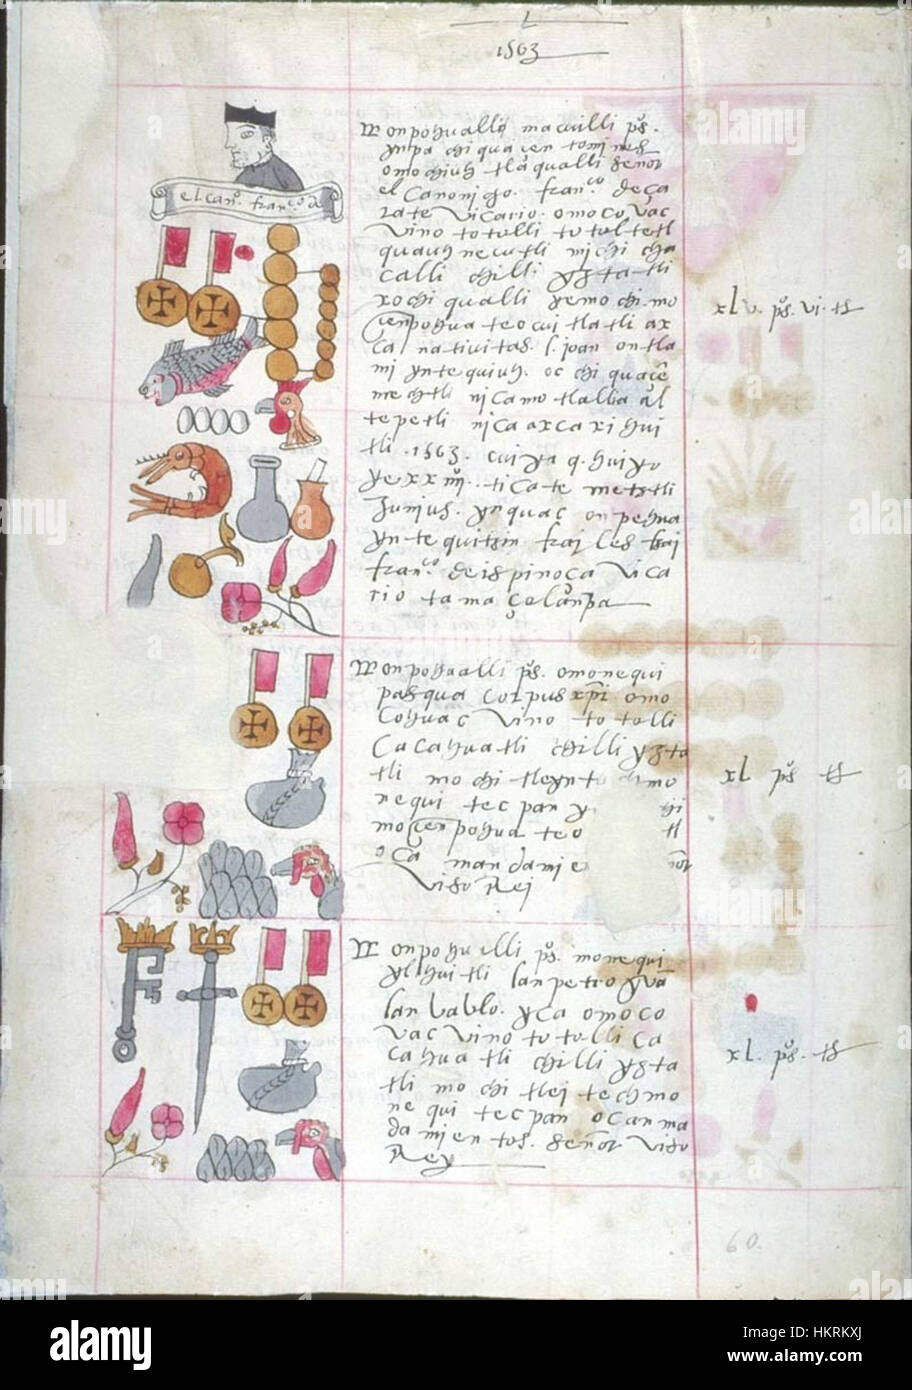 1563
el can.º fran.co d
onpohualli macuilli p.s
ynpa chiquacen tomines
omochiuh tlaqualli señor
el Canonigo. fran.co de ça
rate Vicario. omocovac
vino totolli totoltetl
quauhnecutli michi cha
calli chilli yztatli
xochiqualli yemochi mo
cenpohua teocuitlatli ax
ca natiuitas. s. joan ontla
mi yntequiuh. oc chiquacē
metztli nicamo tlallia al
tepetli nica axcaxihui
tli .1563.
Junius. ynquac onpehua
fran.co de ispinoça vica
rio tamaçolanpa
xlv. p.s. vi. ts
onpohualli p.s. omonequi
pasqua Corpus xp̄i omo
cohuac vino totolli
Cacahuatli chilli yzta
tli mochi tleynt mo
nequi tecpan y hi
mocenpohua teo tl
oca mandamie ñor
Viso Rei
xl p.s ts
onpohualli p.s. monequi
ylhuitli san petro yva
san pablo. yca omoco
vac vino totolli ca
cahuatli chilli yzta
tli mochi tlei techmo
nequi tecpan oca ma
damientos. señor viso
Rey
xl. p.s. ts
60.
alamy
Image ID: HKRKXJ
www.alamy.com